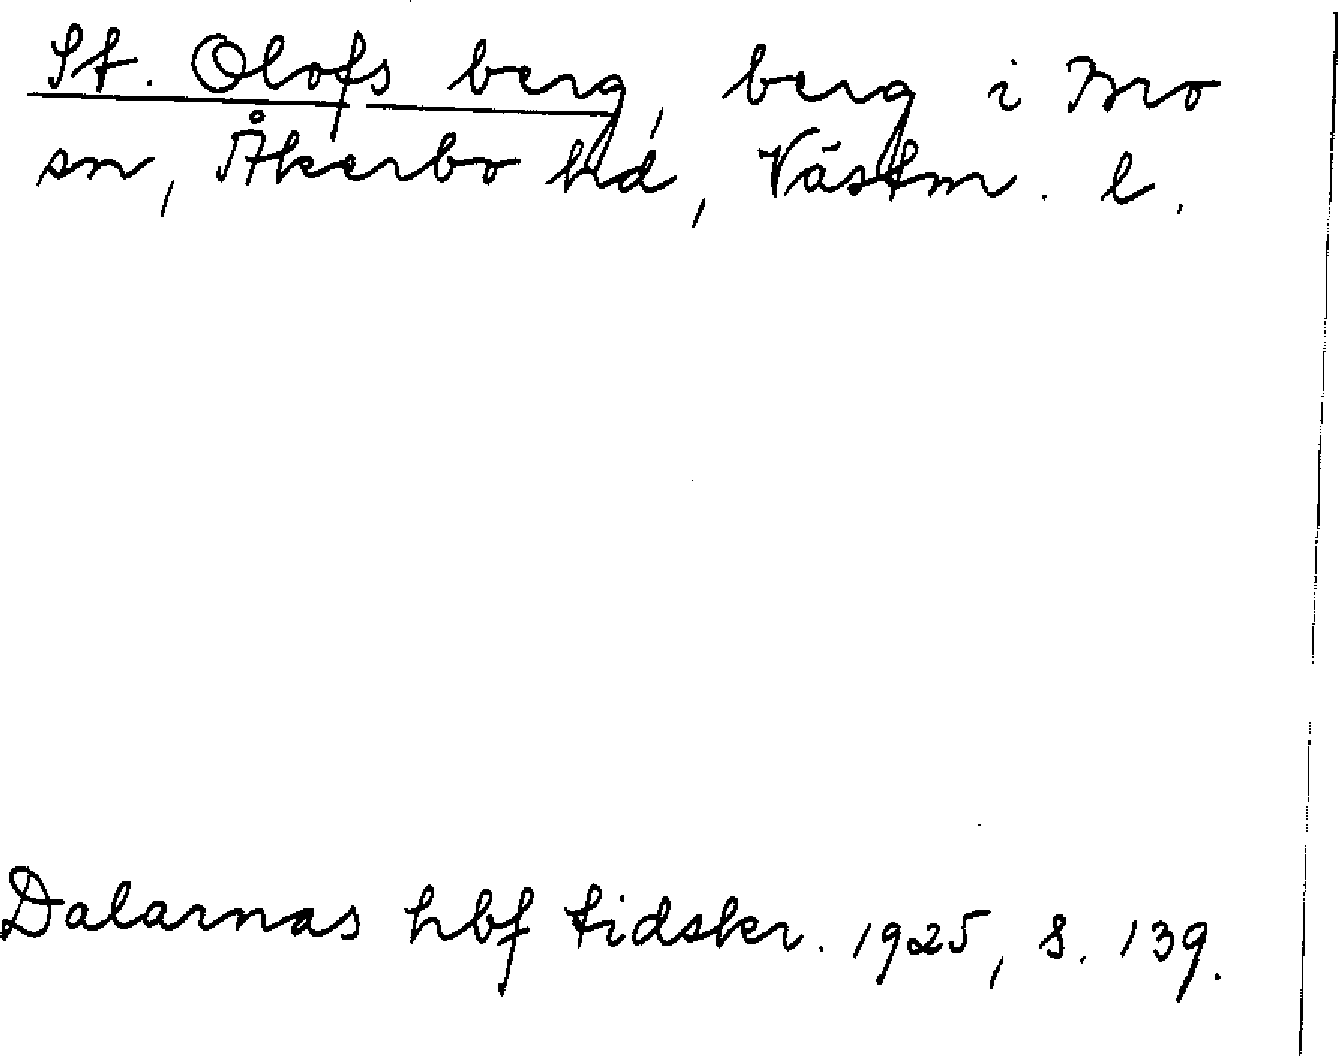 St. Olofs berg, berg i Bro
sn, Åkerbo hd, Västm. l.
Dalarnas hbf tidskr. 1925, s. 139.